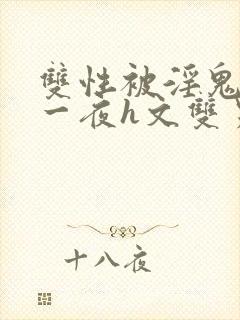 雙性被淫鬼
一夜h文雙
十八夜